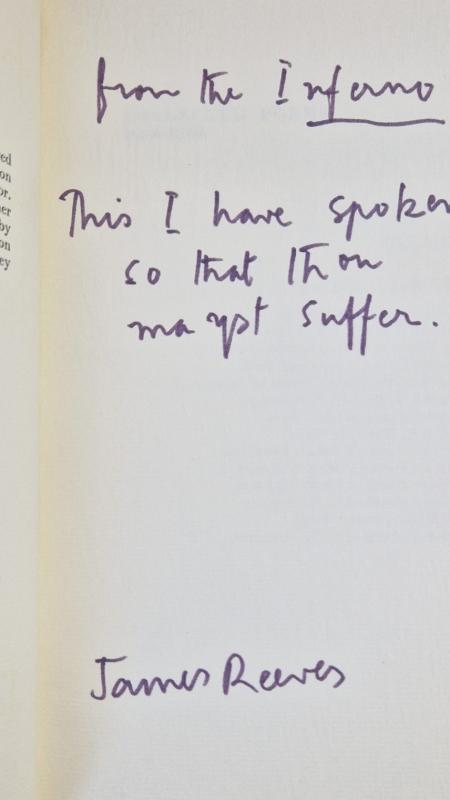 from the Inferno
This I have spoken
so that thou
mayst suffer.
James Reeves
ed
on
or.
her
by
on
ey